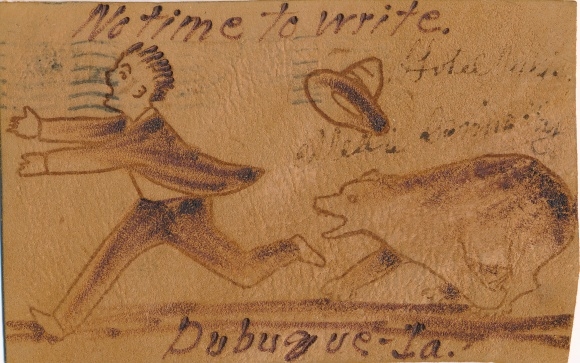 No time to write.
Hotel
Dubuque-Ia.